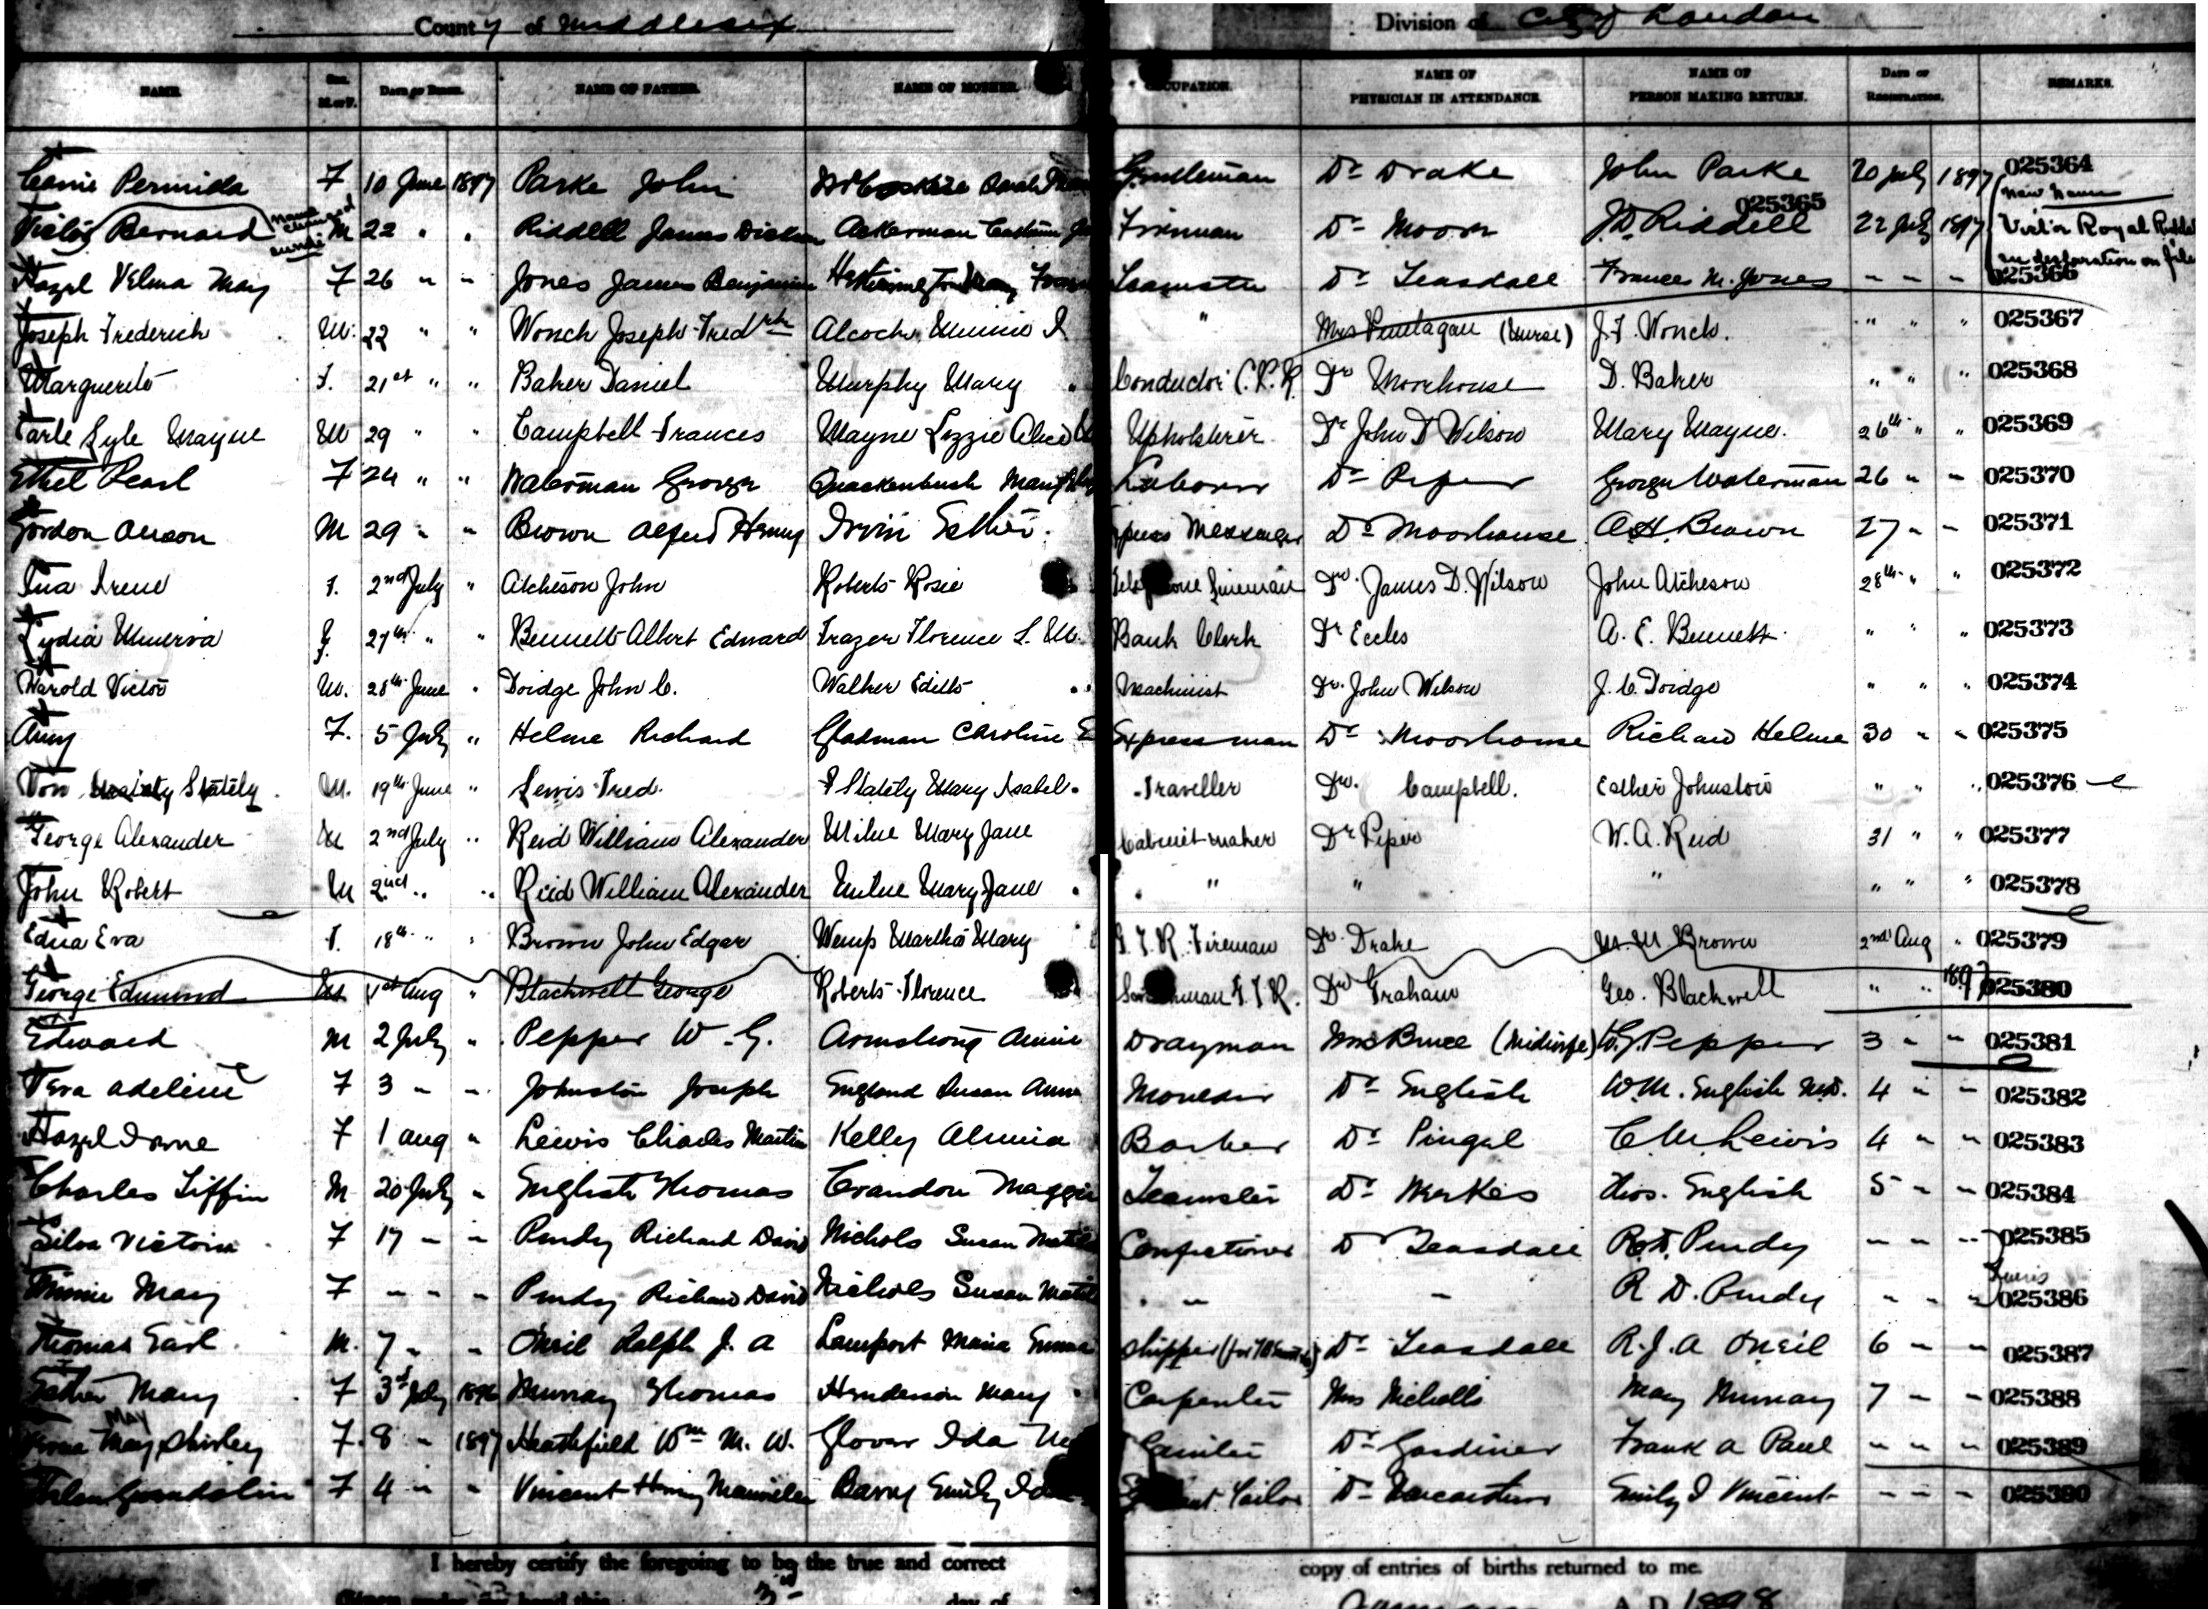 County of Middlesex Division of City of London
NAME. SEX. M. or F. DATE OF BIRTH. NAME OF FATHER. NAME OF MOTHER. OCCUPATION. NAME OF PHYSICIAN IN ATTENDANCE. NAME OF PERSON MAKING RETURN. DATE OF REGISTRATION. REMARKS.
Permida F 10 June 1897 Parke John Gentleman Dr Drake John Parke 20 July 1897 025364
Victor Bernard name changed M 22 " " Riddell James Ackerman Dr Moore J.D. Riddell 025365 22 July 1897 New Name Royal on declaration on file
Hazel Velma May F 26 " " Jones James Benjamin Teamster Dr Teasdall Frances M. Jones - - - 025366
Joseph Frederick M. 22 " " Wonch Joseph Fredrk Alcock, Minnie I " Mrs (Nurse) J. F. Wonch. " " " 025367
Marguerite F. 21st " " Baker Daniel Murphy Mary Conductor C.P.R Dr Moorhouse D. Baker " " " 025368
Earle Lyle Mayne M 29 " " Campbell Frances Mayne Lizzie Alice Upholsterer Dr John D Wilson Mary Mayne. 26th " " 025369
Ethel Pearl F 24 " " Waterman George Quackenbush Mary Laborer Dr Piper George Waterman 26 " " 025370
Gordon Anson M 29 " " Brown Alfred Henry Irvin Esther. Express Messenger Dr Moorhouse A.H. Brown 27 - - 025371
Ina Irene F. 2nd July " Atcheson John Roberts Rosie Telephone Lineman Dr. James D. Wilson John Atcheson 28th " " 025372
Lydia Minerva F. 27th " " Bennett Albert Edward Frazer Florence L. M. Bank Clerk Dr Eccles A. E. Bennett " " " 025373
Harold Victor M. 28th June " Doidge John C. Walker Edith Machinist Dr. John Wilson J. C. Doidge " " " 025374
Amy F. 5 July " Helme Richard Gladman Caroline E Expressman Dr Moorhouse Richard Helme 30 " " 025375
Von Stately M. 19th June " Lewis Fred. Stately Mary Isabel. Traveller Dr. Campbell. Esther Johnston " " " 025376
George Alexander M 2nd July " Reid William Alexander Milne Mary Jane Cabinet maker Dr Piper W. A. Reid 31 " " 025377
John Robert M 2nd " " Reid William Alexander Milne Mary Jane " " " " " " 025378
Edna Eva F. 18th " " Brown John Edgar Wemp Martha Mary G. T. R. Fireman Dr. Drake M. M. Brown 2nd Aug " 025379
George Edmund M 1st Aug " Blackwell George Roberts Florence G.T.R. Dr Graham Geo. Blackwell " " 1897 025380
Edward M 2 July " Pepper W. G. Armstrong Annie Drayman Mrs Bruce (Midwife) W.G. Pepper 3 " " 025381
Vera Adeline F 3 - - Johnston Joseph England Susan Anne Moulder Dr English W.M. English M.D. 4 " " 025382
Hazel F 1 Aug " Lewis Charles Martin Kelly Almina Barber Dr Pingel C. M. Lewis 4 " " 025383
Charles Tiffin M 20 July " English Thomas Crandon Maggie Teamster Dr Meekes Thos. English 5 - - 025384
Silva Victoria F 17 - - Purdy Richard David Nichols Susan Confectioner Dr Teasdall R.D. Purdy - - - 025385
Minnie May F - - - Purdy Richard David Nichols Susan " - R D. Purdy - - - Twins 025386
Thomas Earl M. 7 - - Oneil Ralph J. A Lamport Maria Emma Shipper Dr Teasdall R. J. A Oneil 6 - - 025387
Esther Mary F 3rd July 1896 Murray Thomas Henderson Mary Carpenter Mrs Nicholls Mary Murray 7 - - 025388
May Shirley F. 8 - 1897 Heathfield Wm M. W. Glover Ida Dr Gardiner Frank A Paul - - - 025389
Helen Gwendolin F 4 " " Vincent Henry Barry Emily Ida Tailor Dr Emily I Vincent - - - 025390
I hereby certify the foregoing to be the true and correct copy of entries of births returned to me.
Given under my hand this 3rd day of January A. D. 1898